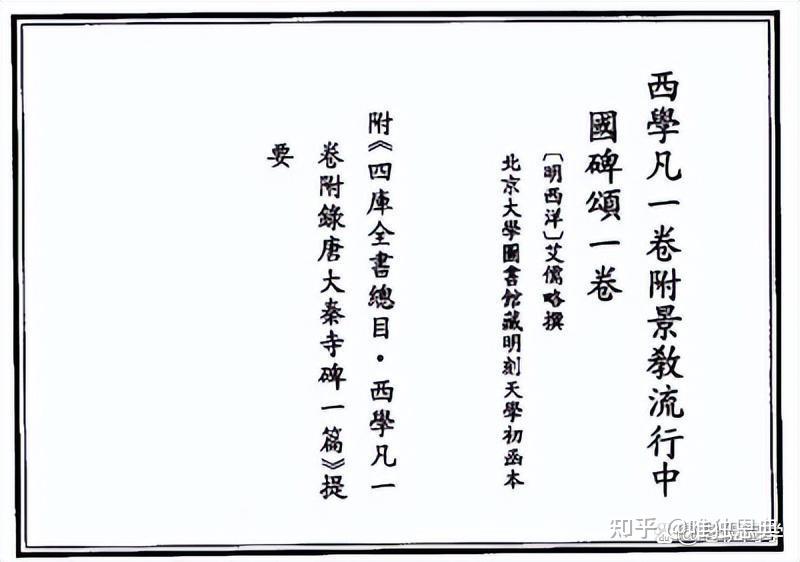 西學凡一卷附景教流行中
國碑頌一卷
〔明西洋〕艾儒略撰
北京大學圖書館藏明刻天學初函本
附《四庫全書總目·西學凡一
卷附錄唐大秦寺碑一篇》提
要
知乎 @唯独恩典